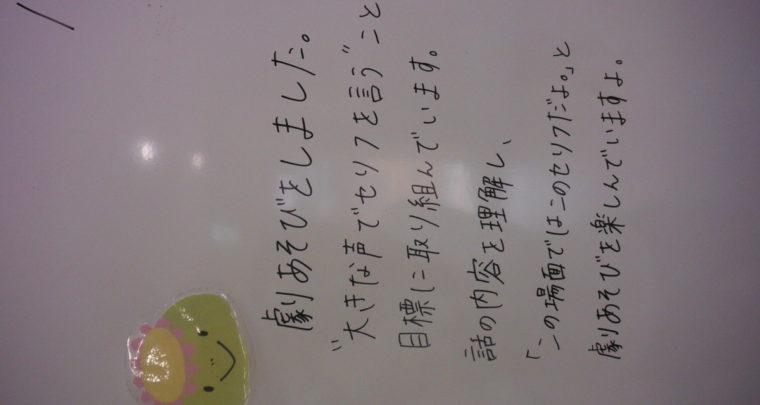 劇あそびをしました。
"大きな声でセリフを言う"こと
目標に取り組んでいます。
話の内容を理解し、
「この場面ではこのセリフだよ。」と
劇あそびを楽しんでいますよ。